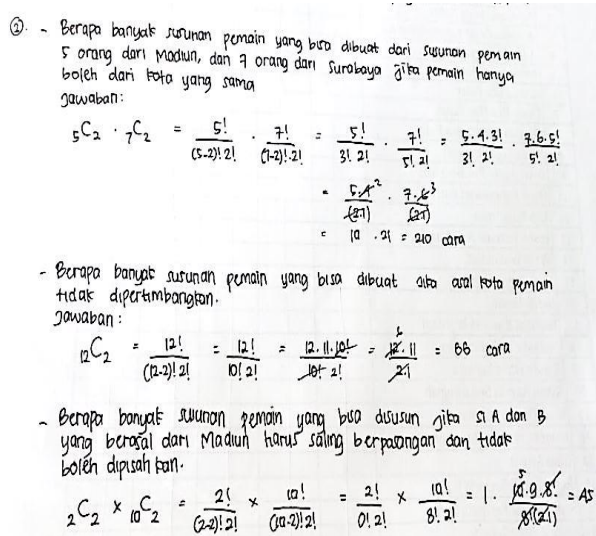 ②. - Berapa banyak susunan pemain yang bisa dibuat dari susunan pemain
5 orang dari Madiun, dan 7 orang dari Surabaya jika pemain hanya
boleh dari kota yang sama
Jawaban:
₅C₂ · ₇C₂ = 5!/(5-2)!2! · 7!/(7-2)!·2! = 5!/3! 2! · 7!/5! 2! = 5.4.3!/3! 2! · 7.6.5!/5! 2!
= 5.4²/(2.1) · 7.6³/(2.1)
= 10 . 21 = 210 cara
- Berapa banyak susunan pemain yang bisa dibuat jika asal kota pemain
tidak dipertimbangkan.
Jawaban :
₁₂C₂ = 12!/(12-2)! 2! = 12!/10! 2! = 12.11.10!/10! 2! = 6 12.11/2.1 = 66 cara
- Berapa banyak susunan pemain yang bisa disusun jika si A dan B
yang berasal dari Madiun harus saling berpasangan dan tidak
boleh dipisahkan.
₂C₂ × ₁₀C₂ = 2!/(2-2)! 2! × 10!/(10-2)! 2! = 2!/0! 2! × 10!/8! 2! = 1 · 5 10.9.8!/8!(2.1) = 45